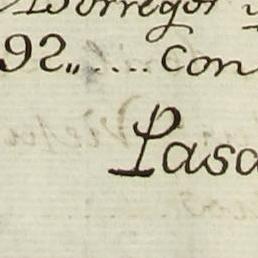 Borregos
92,,.... Con
Pasa